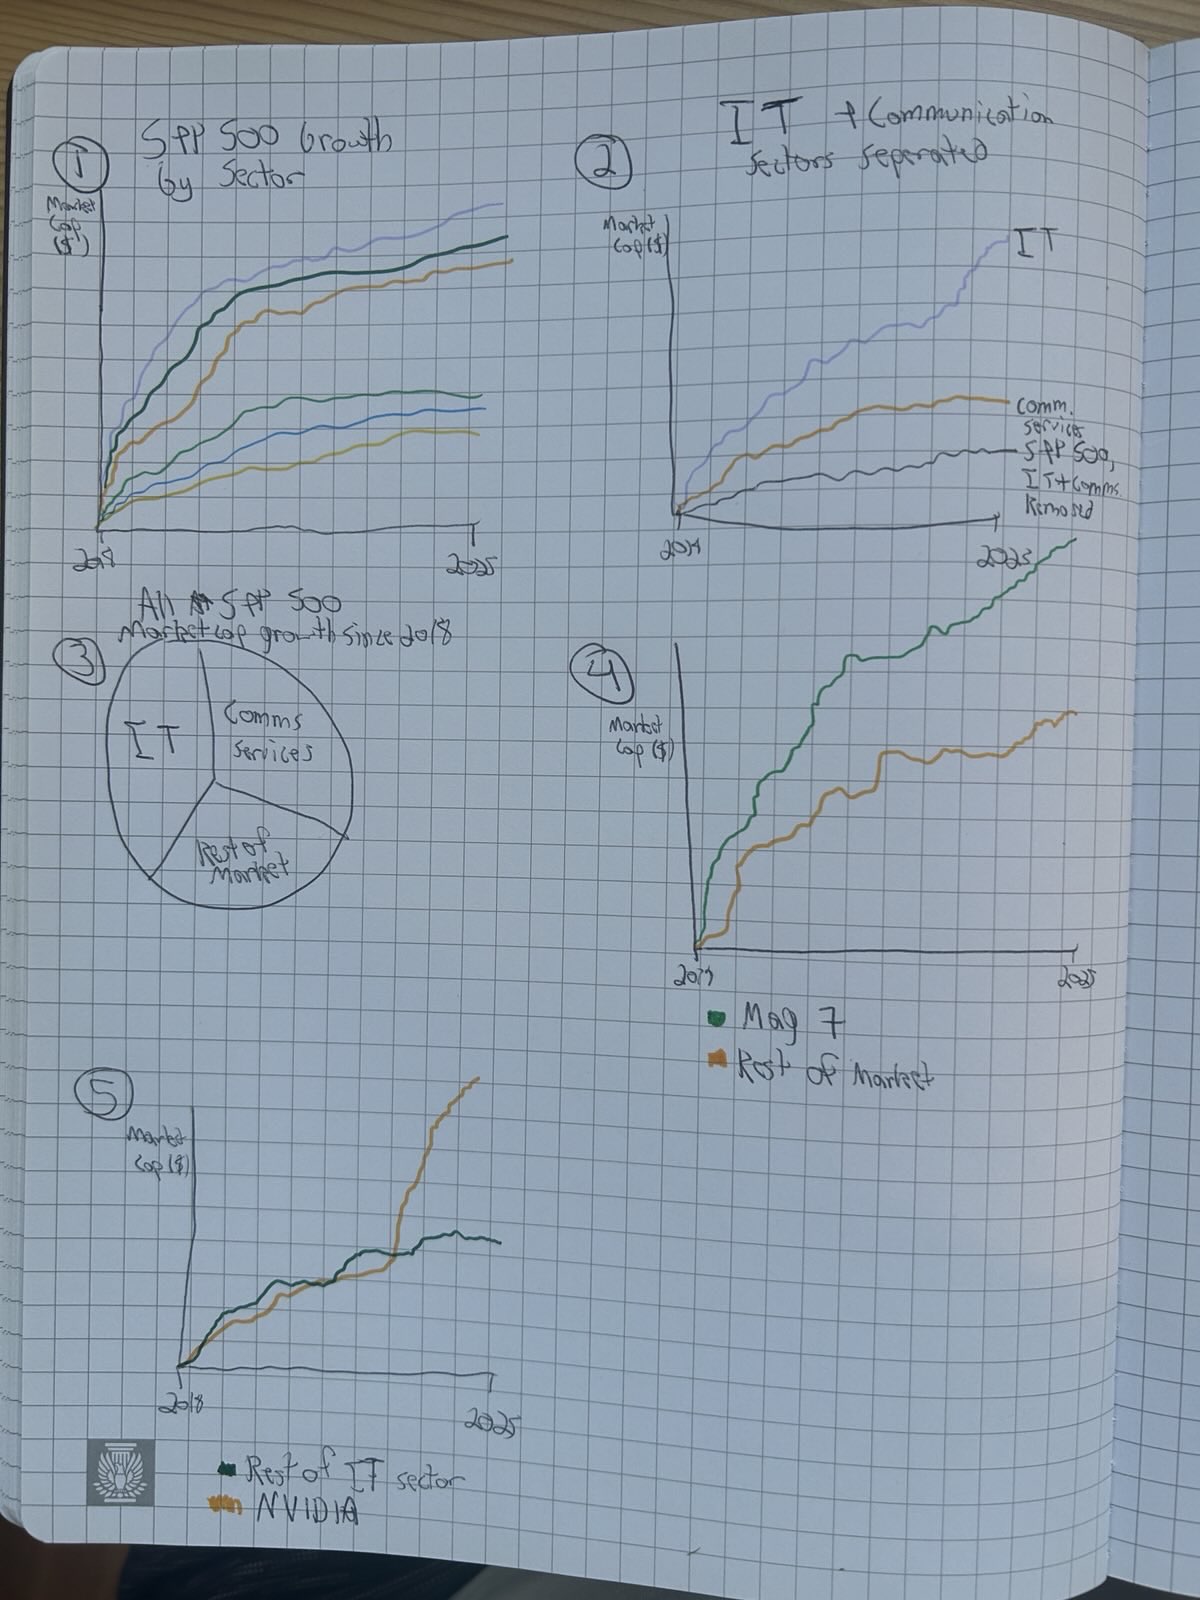 ①
S&P 500 Growth
by Sector
Market
Cap
($)
2018
2025
②
IT + Communication
Sectors Seperated
Market
Cap ($)
IT
Comm.
Services
S&P 500,
IT + Comms.
Removed
2025
③
All S&P 500
Market cap growth since 2018
IT
Comms
Services
Rest of
Market
④
Market
Cap ($)
2025
Mag 7
Rest of Market
⑤
Market
Cap ($)
2018
2025
Rest of IT sector
NVIDIA